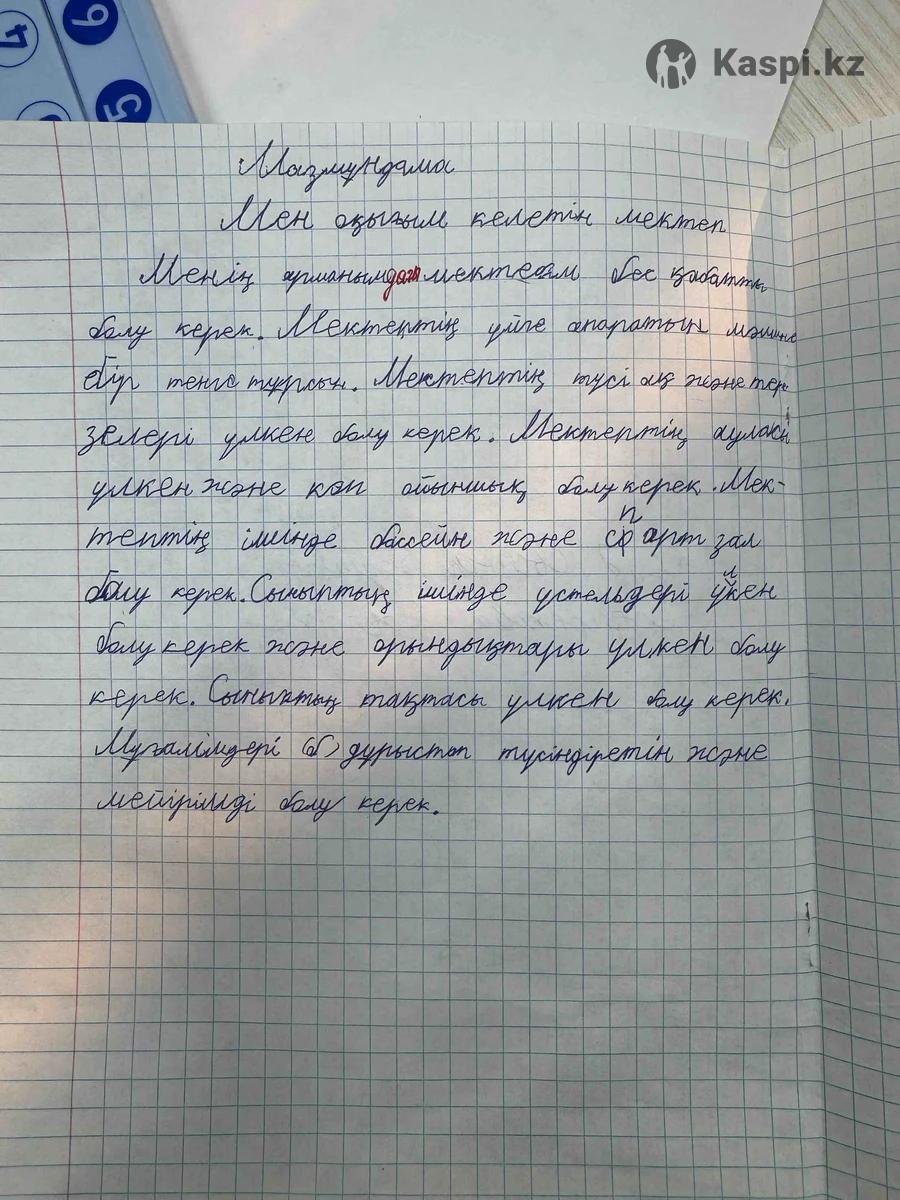 6
4
5
Kaspi.kz
Мазмұндама
Мен оқығым келетін мектеп
Менің арманымдағы мектебім бес қабатты
болу керек. Мектептің үйге апаратын машина
бір теңге тұрсын. Мектептің түсі ақ және тере-
зелері үлкен болу керек. Мектептің ауласы
үлкен және көп ойыншық болу керек. Мек-
тептің ішінде бассейн және спорт зал
болу керек. Сыныптың ішінде үстельдері үлкен
болу керек және орындықтары үлкен болу
керек. Сыныптың тақтасы үлкен болу керек.
Мұғалімдері дұрыстап түсіндіретін және
мейірімді болу керек.